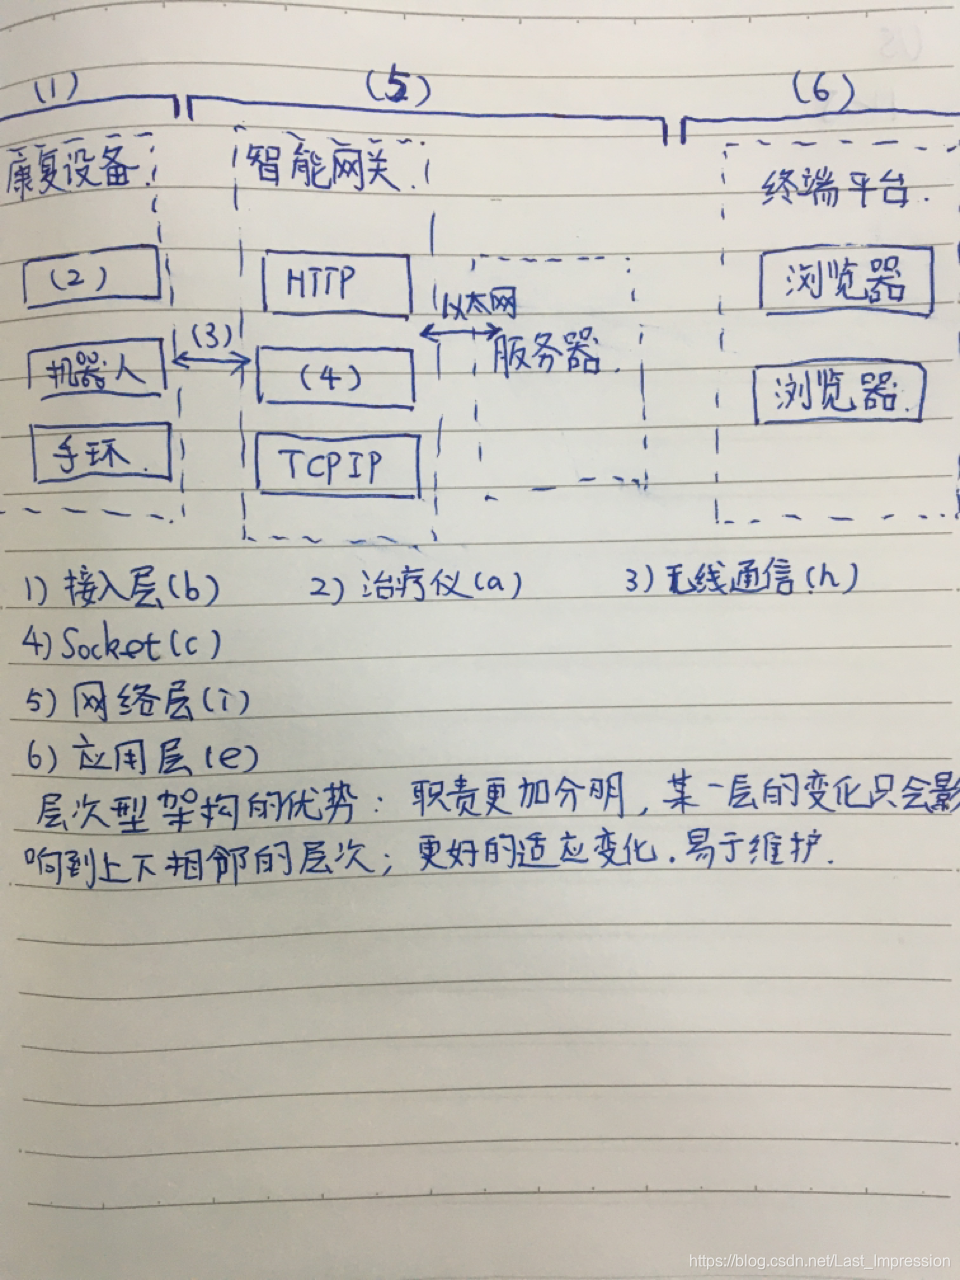 (1) (5) (6)
康复设备. 智能网关. 终端平台.
(2) HTTP 浏览器
以太网
机器人 (3) (4) 服务器. 浏览器.
手环. TCPIP
1) 接入层(b) 2) 治疗仪(a) 3) 无线通信(h)
4) Socket(c)
5) 网络层(i)
6) 应用层(e)
层次型架构的优势: 职责更加分明, 某一层的变化只会影
响到上下相邻的层次; 更好的适应变化. 易于维护.
https://blog.csdn.net/Last_Impression